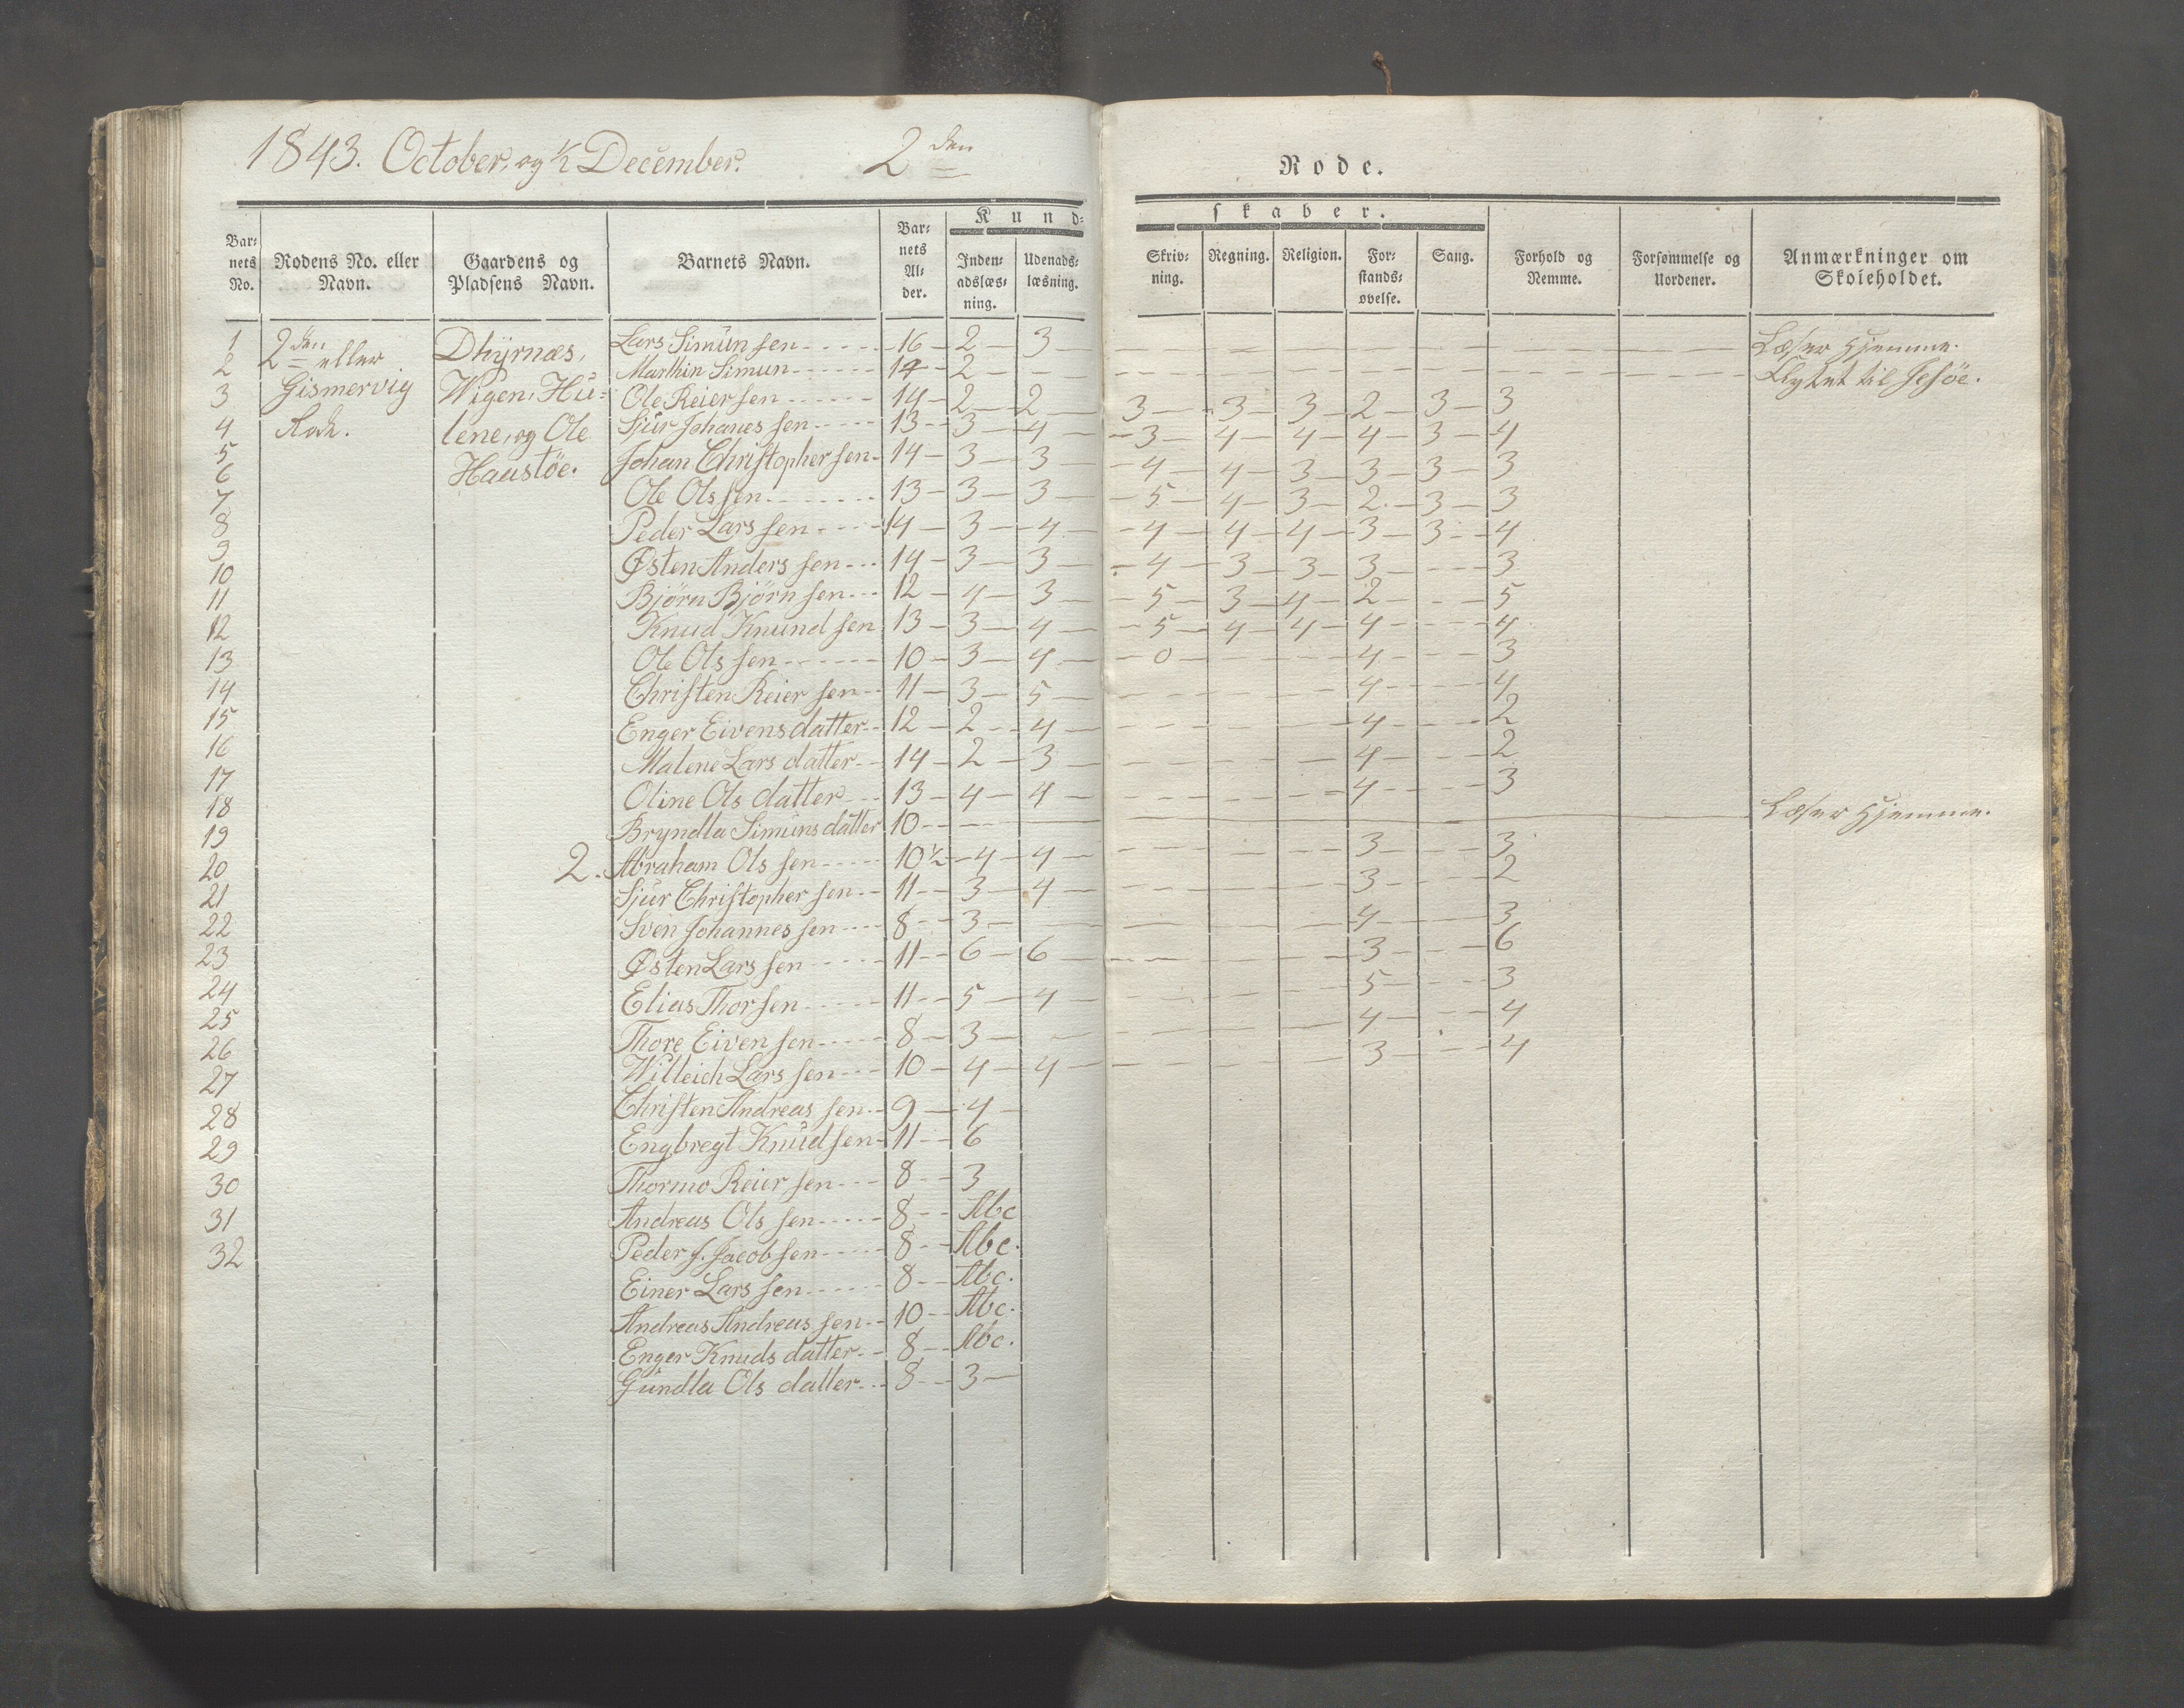 1843. October, og ½ December. 2den Rode.
Kundskaber.
Barnets No. Rodens No. eller Navn. Gaardens og Pladsens Navn. Barnets Navn. Barnets Alder. Indenadslæsning. Udenadslæsning. Skrivning. Regning. Religion. Forstandsøvelse. Sang. Forhold og Nemme. Forsømmelse og Uordener. Anmærkninger om Skoleholdet.
1 2den eller Dhyrnæs, Lars Simunsen 16 2 3 Læser Hjemme.
2 Gismervig Wigen, Hu= Marthin Simun 14 2 - Flyttet til
3 Rode. lene, og Ole Ole Reiersen 14 2 2 3 3 3 2 3 3
4 Haustöe. Sjur Johanessen 13 3 4 3 4 4 4 3 4
5 Johan Christophersen 14 3 3 4 4 3 3 3 3
6 Ole Olssen 13 3 3 5 4 3 2 3 3
7 Peder Larssen 14 3 4 4 4 4 3 3 4
8 Østen Anderssen 14 3 3 4 3 3 3 - 3
9 Bjørn Bjørnsen 12 4 3 5 3 4 2 - 5
10 Knud Knundsen 13 3 4 5 4 4 4 - 4
11 Ole Olssen 10 3 4 0 - - 4 - 3
12 Christen Reiersen 11 3 5 - - - 4 - 4
13 Enger Eivensdatter 12 2 4 - - - 4 - 2
14 Malene Larsdatter 14 2 3 - - - 4 - 2
15 Oline Olsdatter 13 4 4 - - - 4 - 3
16 Bryndla Simunsdatter 10 - - Læser Hjemme.
17 2. Abraham Olssen 10½ 4 4 - - - 3 - 3
18 Sjur Christophersen 11 3 4 - - - 3 - 2
19 Sven Johannessen 8 3 - - - - 4 - 3
20 Østen Larssen 11 6 6 - - - 3 - 6
21 Elias Thorsen 11 5 4 - - - 5 - 3
22 Thore Eivensen 8 3 - - - - 4 - 4
23 Willeich Larssen 10 4 4 - - - 3 - 4
24 Christen Andreassen 9 4 -
25 Engbregt Knudsen 11 6
26 Thormo Reiersen 8 3
27 Andreas Olssen 8 Abc
28 Peder J. Jacobsen 8 Abc.
29 Einer Larssen 8 Abc.
30 Andreas Andreassen 10 Abc.
31 Enger Knudsdatter 8 Abc.
32 Gundla Olsdatter 8 3